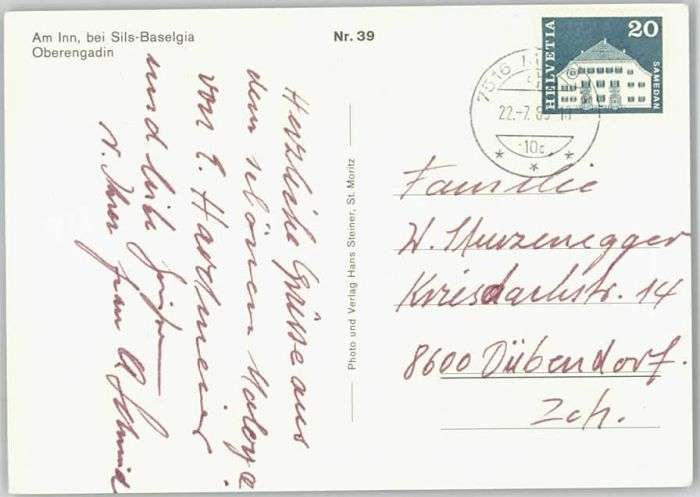 Am Inn, bei Sils-Baselgia
Oberengadin
Nr. 39
HELVETIA
20
SAMEDAN
7516
22.-7.
-10c
Photo und Verlag Hans Steiner, St. Moritz
Herzliche Grüsse aus
dem schönen Maloja
von E. Hardmeier
und liebe
v. Ihrer Frau A Schmid
Familie
W. Sturzenegger
Kriesbachstr. 14
8600 Dübendorf.
Zch.